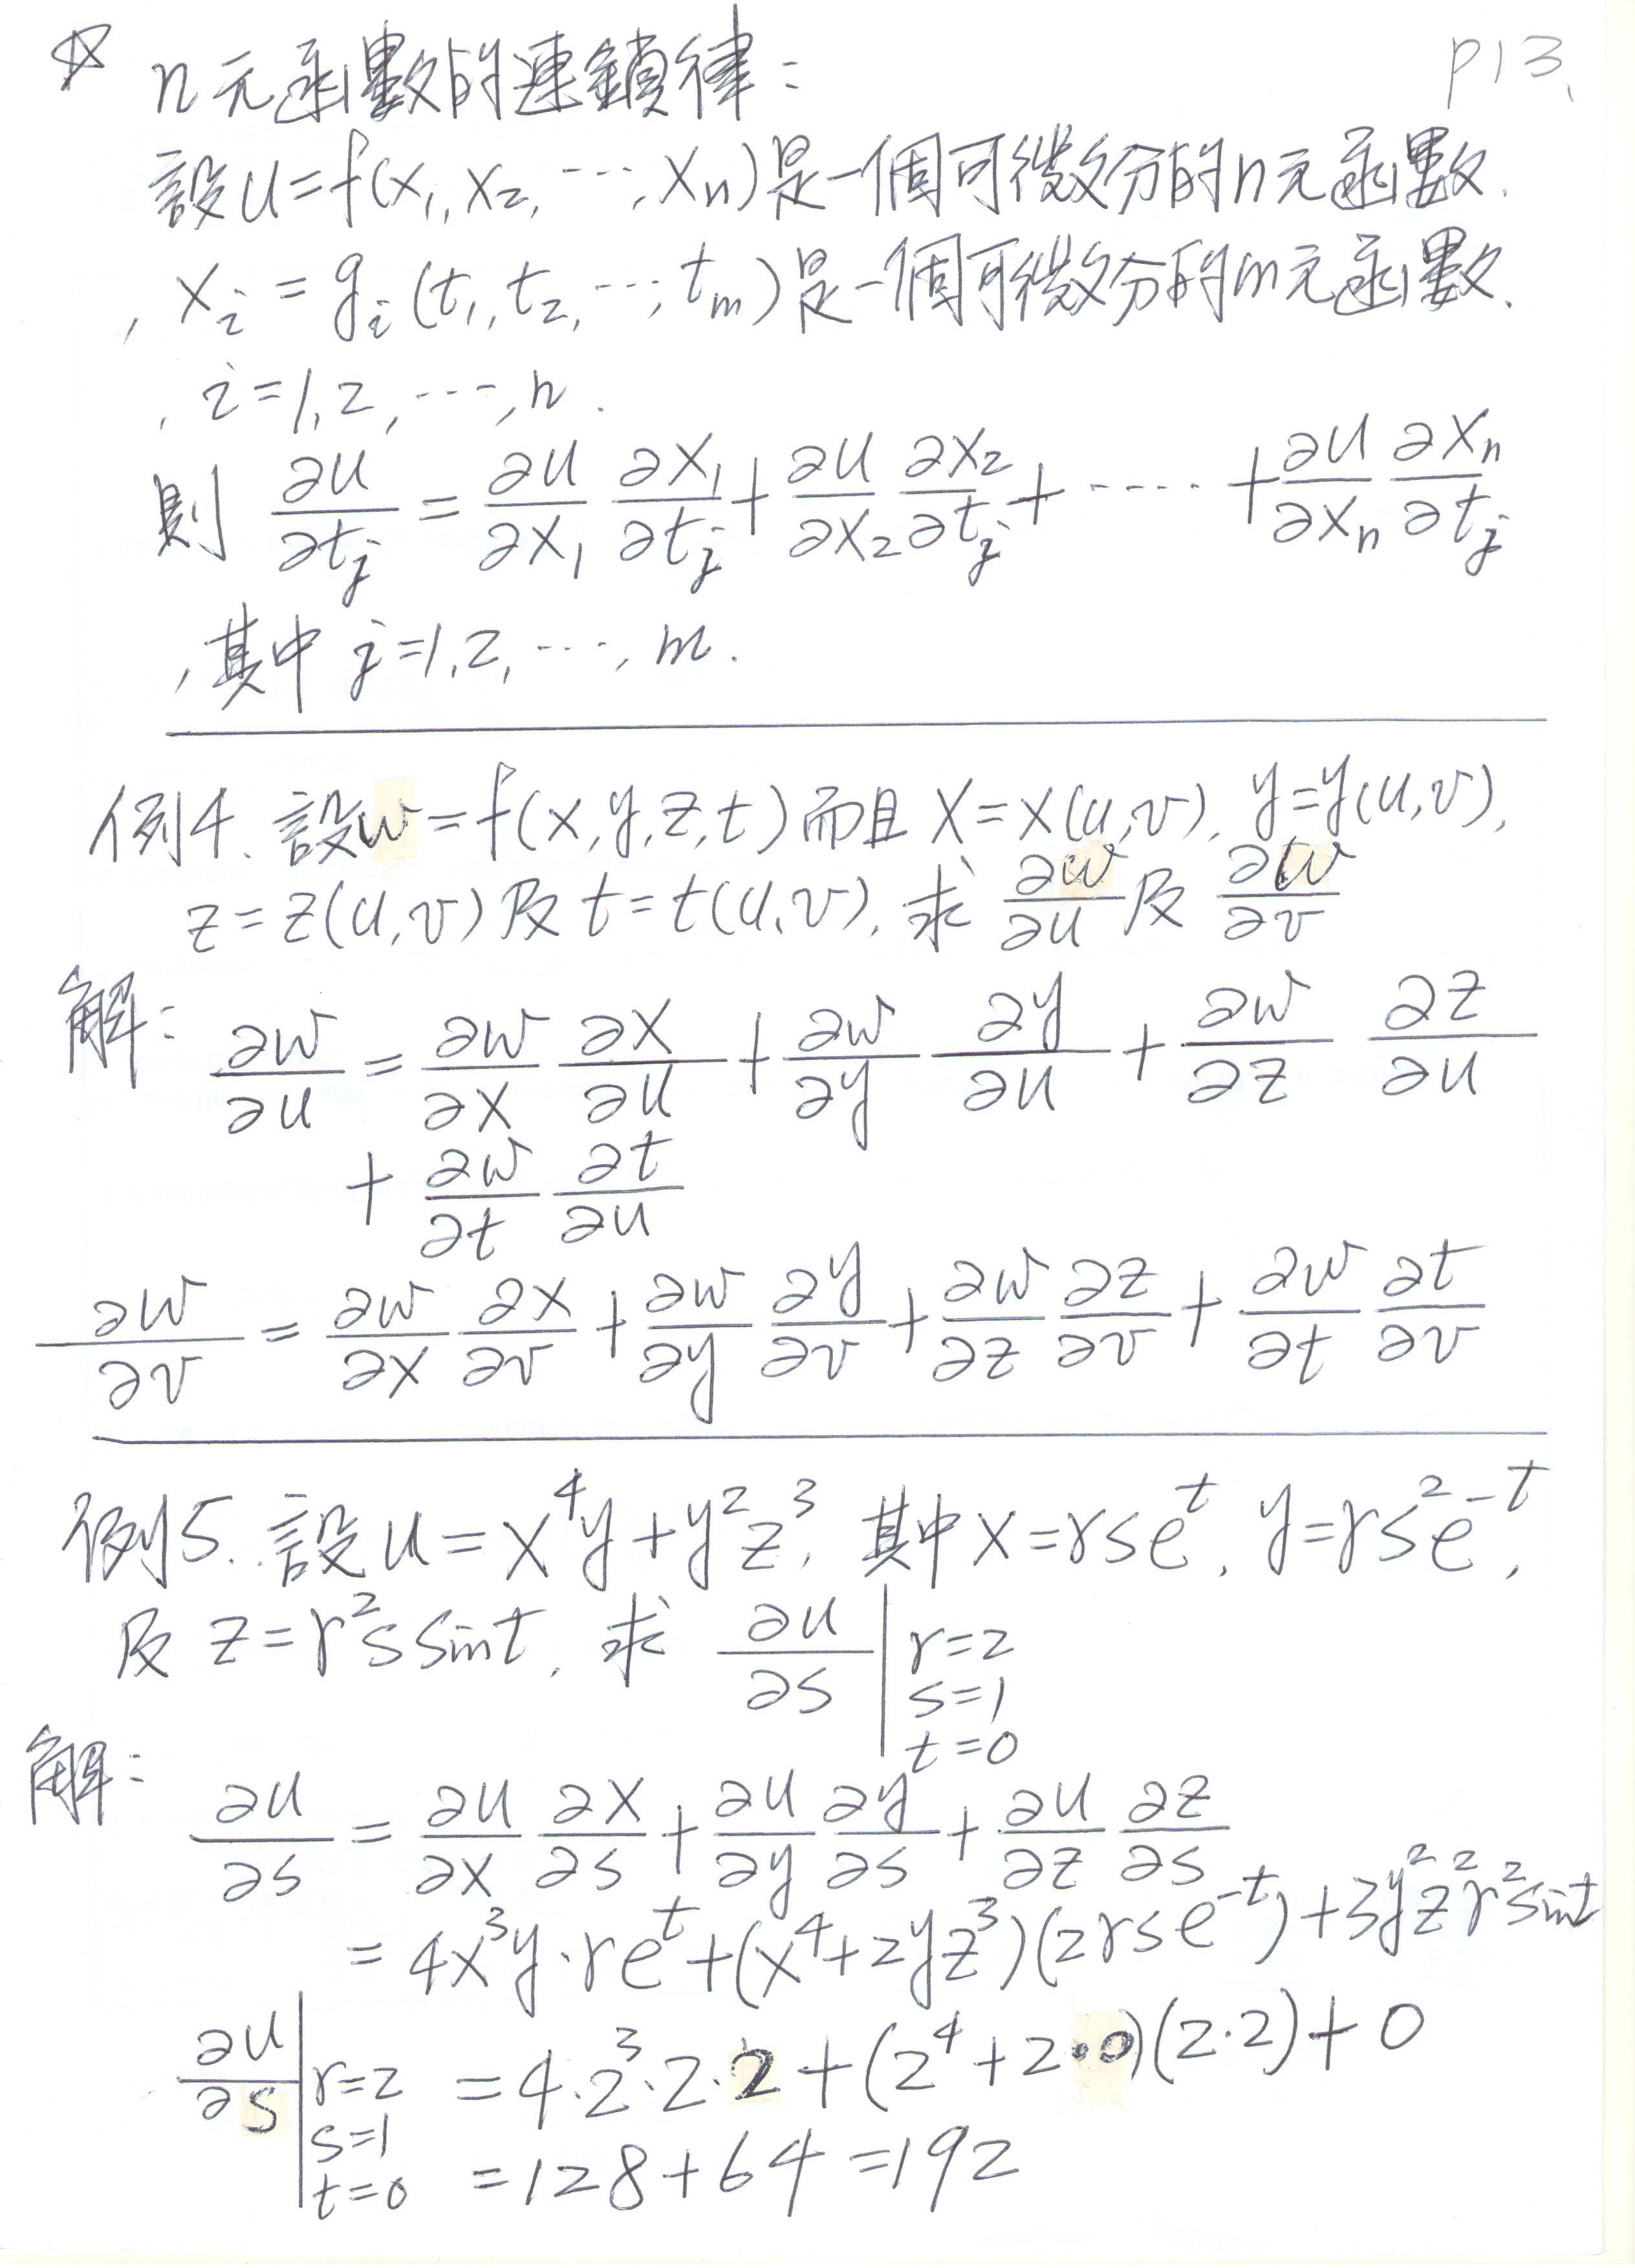 ☆ n元函數的連鎖律: p13.
設u=f(x₁,x₂,…,xₙ)是一個可微分的n元函數.
, xᵢ=gᵢ(t₁,t₂,…,tₘ)是一個可微分的m元函數.
, i=1,2,…,n.
則 ∂u/∂tⱼ = ∂u/∂x₁ ∂x₁/∂tⱼ + ∂u/∂x₂ ∂x₂/∂tⱼ + ···· + ∂u/∂xₙ ∂xₙ/∂tⱼ
, 其中 j=1,2,…,m.
例4. 設w=f(x,y,z,t)而且 x=x(u,v), y=y(u,v),
z=z(u,v)及 t=t(u,v), 求 ∂w/∂u 及 ∂w/∂v
解: ∂w/∂u = ∂w/∂x ∂x/∂u + ∂w/∂y ∂y/∂u + ∂w/∂z ∂z/∂u
+ ∂w/∂t ∂t/∂u
∂w/∂v = ∂w/∂x ∂x/∂v + ∂w/∂y ∂y/∂v + ∂w/∂z ∂z/∂v + ∂w/∂t ∂t/∂v
例5. 設u=x⁴y+y²z³, 其中x=rse^t, y=rs²e^-t,
及 z=r²s sint, 求 ∂u/∂s | r=2 s=1 t=0
解: ∂u/∂s = ∂u/∂x ∂x/∂s + ∂u/∂y ∂y/∂s + ∂u/∂z ∂z/∂s
= 4x³y·re^t+(x⁴+2yz³)(2rse^-t)+3y²z²r²sint
∂u/∂s | r=2 s=1 t=0 = 4·2³·2·2+(2⁴+2·0)(2·2)+0
= 128+64=192